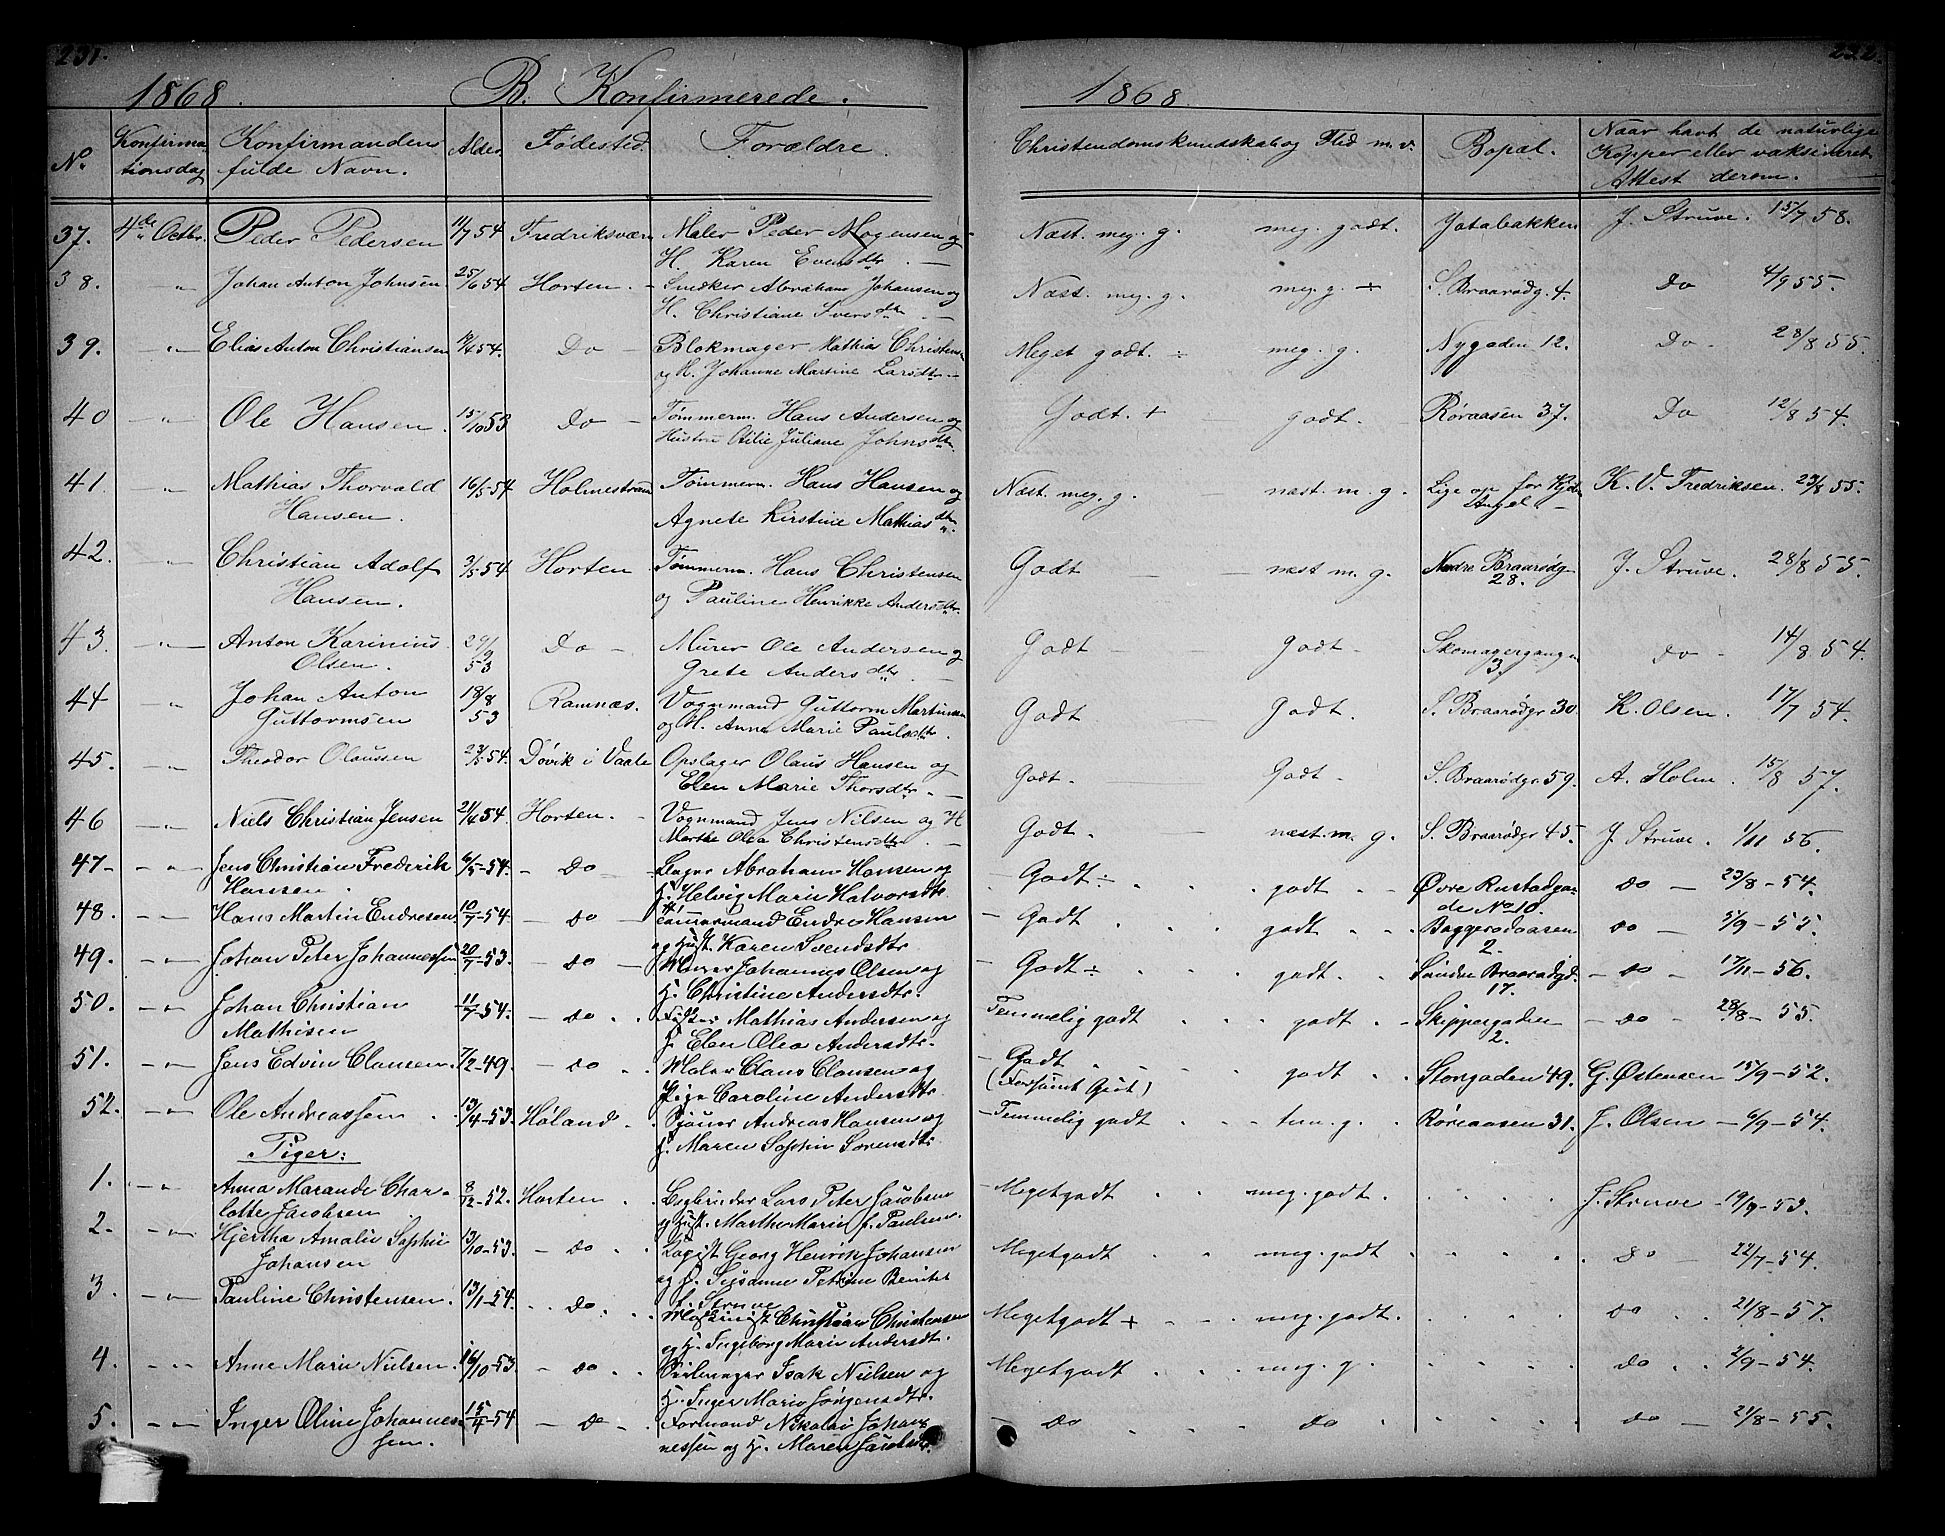 231.
232.
1868. B. Konfirmerede. 1868
No Konfirmationsdag Konfirmandens fulde Navn. Alder Fødested Forældre. Christendomskundskab og Flid m. v. Bopæl. Naar havt de naturlige Kopper eller vaksineret Attest derom.
37. 4de Octbr. Peder Pedersen 11/7 54 Fredriksværn Maler Peder Mogensen og Næst. meg. g. meg. godt. Jatabakken J. Struve. 15/7 58.
H. Karen Evensdtr. —
38. —„— Johan Anton Johnsen 25/6 54 Horten. - Snedker Abraham Johansen og Næst. meg. g. meg. g. ÷ S. Braarødg. 4. Do 4/9 55.
H. Christiane Iversdtr. —
39. —„— Elias Anton Christiansen /4 54. Do — Blokmager Mathias Christens Meget godt. ÷ meg. g. Nygaden 12. Do - 28/8 55.
og H. Johanne Martine Larsdtr. —
40 —„— Ole Hansen. 15/10 53 Do — Tømmerm. Hans Andersen og Godt. + godt. Røraasen 37. Do 12/8 54.
Hustru Otilie Juliane Johnsdtr.
41. —„— Mathias Thorvald 16/5 54 Holmestrand Tømmerm. Hans Hansen og Næst. meg. g. — næst. m. g. Lige op for K. V. Fredriksen. 29/8 55.
Hansen. Agnete Kirstine Mathiasdtr. Angel —
42. —„— Christian Adolf 3/5 54 Horten Tømmerm. Hans Christensen Godt — næst m. g. Nordre Braarødg J. Struve. 28/8 55.
Hansen. og Pauline Henrikke Andersdtr. 28.
43. —„— Anton Karinius 29/9 Do - Murer Ole Andersen og Godt — godt - Skomagergangen Do - 14/8 54.
Olsen. 53 Grete Andersdtr. — 3.
44 —„— Johan Anton 18/8 Ramnæs. Vognmand Guttorm Martinsen Godt — Godt. S. Braarødgr 30 K. Olsen. 17/7 54.
Guttormsen 53 og H. Anne Marie Paulsdtr.
45. —„— Theodor Olaussen 23/5 54. Døvik i Vaale Opslager Olaus Hansen og Godt. — Godt - S. Braarødgr 59. A. Holm. 15/8 57.
Elen Marie Thorsdtr. —
46 —„— Niels Christian Jensen 21/4 54. Horten. - Vognmand Jens Nilsen og H Godt. — næst. m. g. S. Braarødgr 45. J. Struve - 1/11 56.
Marthe Olea Christensdtr. —
47- - „ Jens Christian Frederik 6/5-54. - Do - Abraham Hansen og - Godt ÷ godt Øvre Rustadga- do — 23/8 - 54.
Hansen. H. Helvig Marie Halvorsdtr. de No 10.
48. - „ - Hans Martin Endresen 10/7-54. - do - Tømmermand Endre Hansen - Godt godt do — 5/9 - 55.
og Hust. Karen Svendsdtr. 2.
49. - „ - Johan Peter Johannessen 20/7-53. - do - Murer Johannes Olsen og - Godt ÷ godt Søndre Braarødgd. - do - 17/11 - 56.
H. Christine Andersdtr. 17.
50. - „ - Johan Christian 11/7-54. - do . . Mathias Andersen og Temmelig godt godt Skippergaden - do - 28/8 - 55.
Mathisen H. Elen Olea Andersdtr. 2.
51. - „ - Jens Edvin Clausen. 7/2-49. - do . Maler Claus Clausen og - Godt godt Storgaden 49. G. Østensen 15/9 - 52.
Pige Caroline Andersdtr. (Forsømt Gut)
52. - „ - Ole Andreassen. 13/4-53. Høland. . Andreas Hansen og - Temmelig godt tem. g. Røreaasen 31. J. Olsen - 6/9 - 54.
H. Maren Sophie Sørensdtr
Piger:
1. - „ - Anna Marande Char- 8/12-52. Horten . Lars Peter Jacobsen - Meget godt meg. godt. J. Struve - 19/9 - 53.
lotte Jacobsen og Hust. Marthe Marie f. Paulsen.
2. - „ - Hjertha Amalie Sophie 13/10-53. - do . Logist Georg Henrik Johansen Meget godt meg. godt do 22/7 - 54.
Johansen og H. Susanne Petrine Benitet
f. Struve
3. - „ - Pauline Christensen. 13/1-54. . . do. Maskinist Christian Christensen Meget godt + meg. godt. do 21/8 - 57.
og H. Ingeborg Marie Andersdt.
4. - „ - Anne Marie Nielsen. 16/10-53 - do . Seilmager Isak Nielsen og Meget godt meg. g. do 2/9 - 54.
H. Inger Marie Jørgensdtr.
5. - „ - Inger Oline Johannes- 15/4-54 - do - Formand Nikolai Johan- - do do do — 21/8 - 55.
sen. nessen og H. Maren Jacobsdtr.